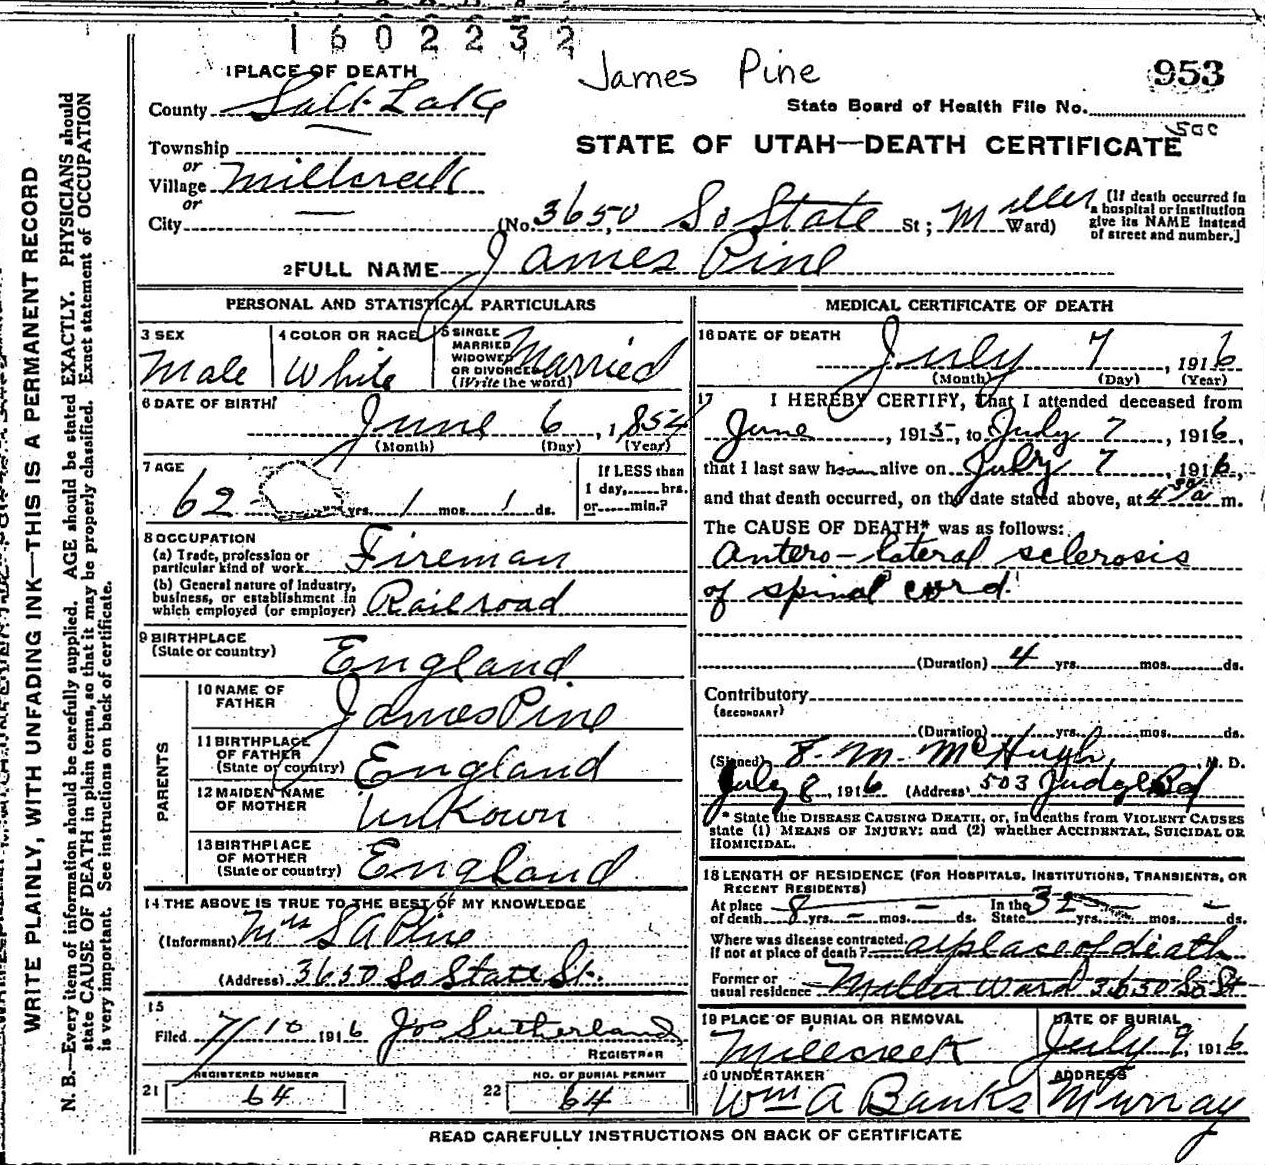 1602232
James Pine
953
1 PLACE OF DEATH
County Salt Lake
State Board of Health File No.
Township
STATE OF UTAH—DEATH CERTIFICATE
or
Village Millcreek
or
City — (No. 3650 So State St; Miller Ward)
[If death occurred in a hospital or institution give its NAME instead of street and number.]
2 FULL NAME James Pine
PERSONAL AND STATISTICAL PARTICULARS
3 SEX
Male
4 COLOR OR RACE
White
5 SINGLE
MARRIED
WIDOWED
OR DIVORCED
(Write the word)
Married
6 DATE OF BIRTH
June 6, 1854
(Month) (Day) (Year)
7 AGE
62 yrs. 1 mos. 1 ds.
If LESS than
1 day, hrs.
or min.?
8 OCCUPATION
(a) Trade, profession or
particular kind of work Fireman
(b) General nature of industry,
business, or establishment in
which employed (or employer) Railroad
9 BIRTHPLACE
(State or country) England
PARENTS
10 NAME OF
FATHER James Pine
11 BIRTHPLACE
OF FATHER
(State or country) England
12 MAIDEN NAME
OF MOTHER Unkown
13 BIRTHPLACE
OF MOTHER
(State or country) England
14 THE ABOVE IS TRUE TO THE BEST OF MY KNOWLEDGE
(Informant) Mrs S A Pine
(Address) 3650 So State St.
15
Filed 7/10 1916 Jos Sutherland
REGISTRAR
REGISTERED NUMBER
21 64
NO. OF BURIAL PERMIT
22 64
MEDICAL CERTIFICATE OF DEATH
16 DATE OF DEATH
July 7, 1916
(Month) (Day) (Year)
17 I HEREBY CERTIFY, That I attended deceased from
June, 1915, to July 7, 1916,
that I last saw him alive on July 7, 1916,
and that death occurred, on the date stated above, at 4 30/a m.
The CAUSE OF DEATH* was as follows:
Antero-lateral sclerosis
of spinal cord
(Duration) 4 yrs. mos. ds.
Contributory
(SECONDARY)
(Duration) yrs. mos. ds.
(Signed) F. M. McHugh, M. D.
July 8, 1916 (Address) 503 Judge Bd
* State the DISEASE CAUSING DEATH, or, in deaths from VIOLENT CAUSES
state (1) MEANS OF INJURY; and (2) whether ACCIDENTAL, SUICIDAL OR
HOMICIDAL.
18 LENGTH OF RESIDENCE (FOR HOSPITALS, INSTITUTIONS, TRANSIENTS, OR
RECENT RESIDENTS)
At place
of death 8 yrs. – mos. – ds.
In the
State 32 yrs. mos. – ds.
Where was disease contracted,
If not at place of death? at place of death
Former or
usual residence Miller Ward 3650 So St
19 PLACE OF BURIAL OR REMOVAL
Millcreek
DATE OF BURIAL
July 9, 1916
20 UNDERTAKER
Wm A Banks
ADDRESS
Murray
READ CAREFULLY INSTRUCTIONS ON BACK OF CERTIFICATE
WRITE PLAINLY, WITH UNFADING INK—THIS IS A PERMANENT RECORD
N. B.—Every item of information should be carefully supplied. AGE should be stated EXACTLY. PHYSICIANS should
state CAUSE OF DEATH in plain terms, so that it may be properly classified. Exact statement of OCCUPATION
is very important. See instructions on back of certificate.